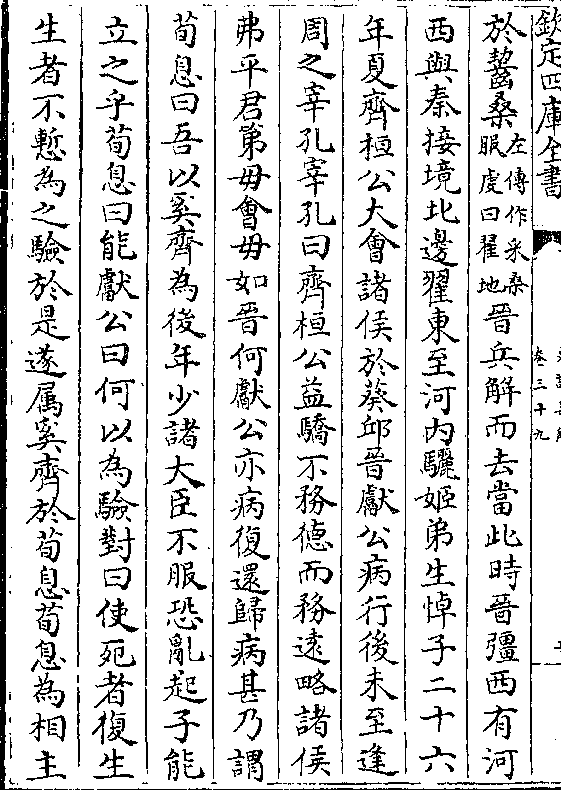 欽定四庫全書
卷三十九
於齧桑左傳作采桑服虔曰翟地晉兵解而去當此時晉彊西有河
西與秦接境北邊翟東至河內驪姬弟生悼子二十六
年夏齊桓公大會諸侯於葵邱晉獻公病行後未至逢
周之宰孔宰孔曰齊桓公益驕不務德而務遠略諸侯
弗平君第毋會毋如晉何獻公亦病復還歸病甚乃謂
荀息曰吾以奚齊為後年少諸大臣不服恐亂起子能
立之乎荀息曰能獻公曰何以為驗對曰使死者復生
生者不慙為之驗於是遂屬奚齊於荀息荀息為相主